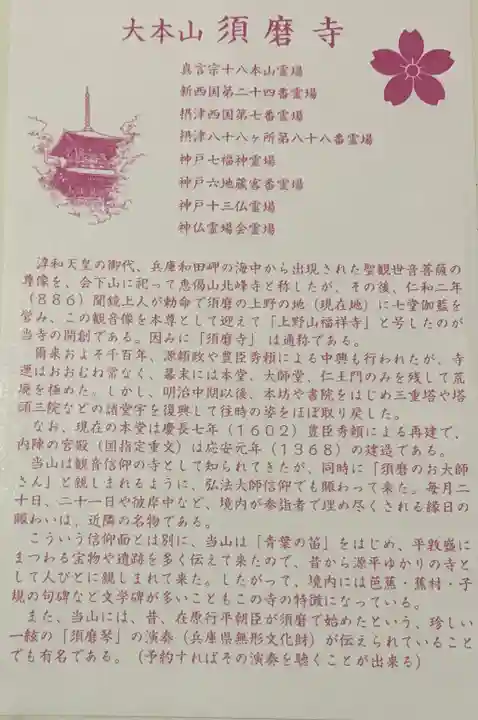 大本山 須磨寺
真言宗十八本山霊場
新西国第二十四番霊場
摂津西国第七番霊場
摂津八十八ヶ所第八十八番霊場
神戸七福神霊場
神戸六地蔵客番霊場
神戸十三仏霊場
神仏霊場会霊場
淳和天皇の御代、兵庫和田岬の海中から出現された聖観世音菩薩の
尊像を、会下山に祀って恵偈山北峰寺と称したが、その後、仁和二年
(886)聞鏡上人が勅命で須磨の上野の地(現在地)に七堂伽藍を
営み、この観音像を本尊として迎えて「上野山福祥寺」と号したのが
当寺の開創である。因みに「須磨寺」は通称である。
爾来およそ千百年、源頼政や豊臣秀頼による中興も行われたが、寺
運はおおむね常なく、幕末には本堂、大師堂、仁王門のみを残して荒
廃を極めた。しかし、明治中期以後、本坊や書院をはじめ三重塔や塔
頭三院などの諸堂宇を復興して往時の姿をほぼ取り戻した。
なお、現在の本堂は慶長七年(1602)豊臣秀頼による再建で、
内陣の宮殿(国指定重文)は応安元年(1368)の建造である。
当山は観音信仰の寺として知られてきたが、同時に「須磨のお大師
さん」と親しまれるように、弘法大師信仰でも賑わって来た。毎月二
十日、二十一日や彼岸中など、境内が参詣者で埋め尽くされる縁日の
賑わいは、近隣の名物である。
こういう信仰面とは別に、当山は「青葉の笛」をはじめ、平敦盛に
まつわる宝物や遺跡を多く伝えて来たので、昔から源平ゆかりの寺と
して人びとに親しまれて来た。したがって、境内には芭蕉・蕪村・子
規の句碑など文学碑が多いこともこの寺の特徴になっている。
また、当山には、昔、在原行平朝臣が須磨で始めたという、珍しい
一絃の「須磨琴」の演奏(兵庫県無形文化財)が伝えられていること
でも有名である。(予約すればその演奏を聴くことが出来る)